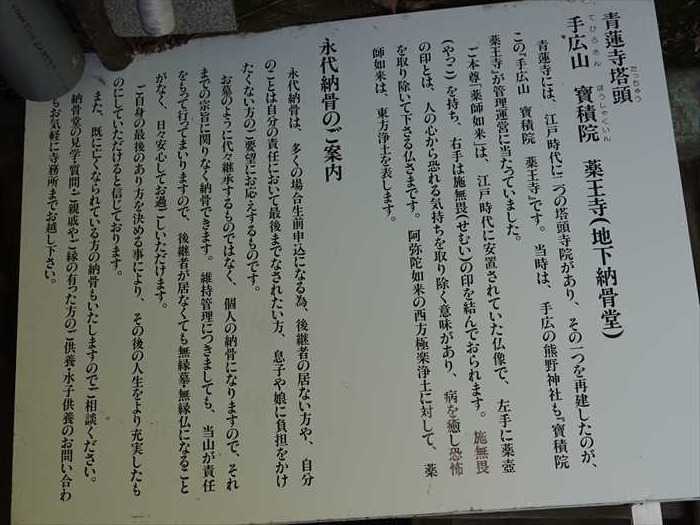 青蓮寺塔頭
たっちゅう
手広山　寶積院　薬王寺(地下納骨堂)
てひろさん　ほうしゃくいん
青蓮寺には、江戸時代に二つの塔頭寺院があり、その一つを再建したのが、
この『手広山　寶積院　薬王寺』です。当時は、手広の熊野神社も『寶積院
薬王寺』が管理運営に当たっていました。
ご本尊『薬師如来』は、江戸時代に安置されていた仏像で、左手に薬壺
(やっこ)を持ち、右手は施無畏(せむい)の印を結んでおられます。施無畏
の印とは、人の心から恐れる気持ちを取り除く意味があり、病を癒し恐怖
を取り除いて下さる仏さまです。阿弥陀如来の西方極楽浄土に対して、薬
師如来は、東方浄土を表します。
永代納骨のご案内
永代納骨は、多くの場合生前申込になる為、後継者の居ない方や、自分
のことは自分の責任において最後までなされたい方、息子や娘に負担をかけ
たくない方のご要望にお応えするものです。
お墓のように代々継承するものではなく、個人の納骨になりますので、それ
までの宗旨に関りなく納骨できます。維持管理につきましても、当山が責任
をもって行ってまいりますので、後継者が居なくても無縁墓・無縁仏になること
がなく、日々安心してお過ごしいただけます。
ご自身の最後のあり方を決める事により、その後の人生をより充実したも
のにしていただけると信じております。
また、既に亡くなられている方の納骨もいたしますのでご相談ください。
納骨堂の見学・質問・ご親戚やご縁の有った方のご供養・水子供養のお問い合わ
もお気軽に寺務所までお越し下さい。